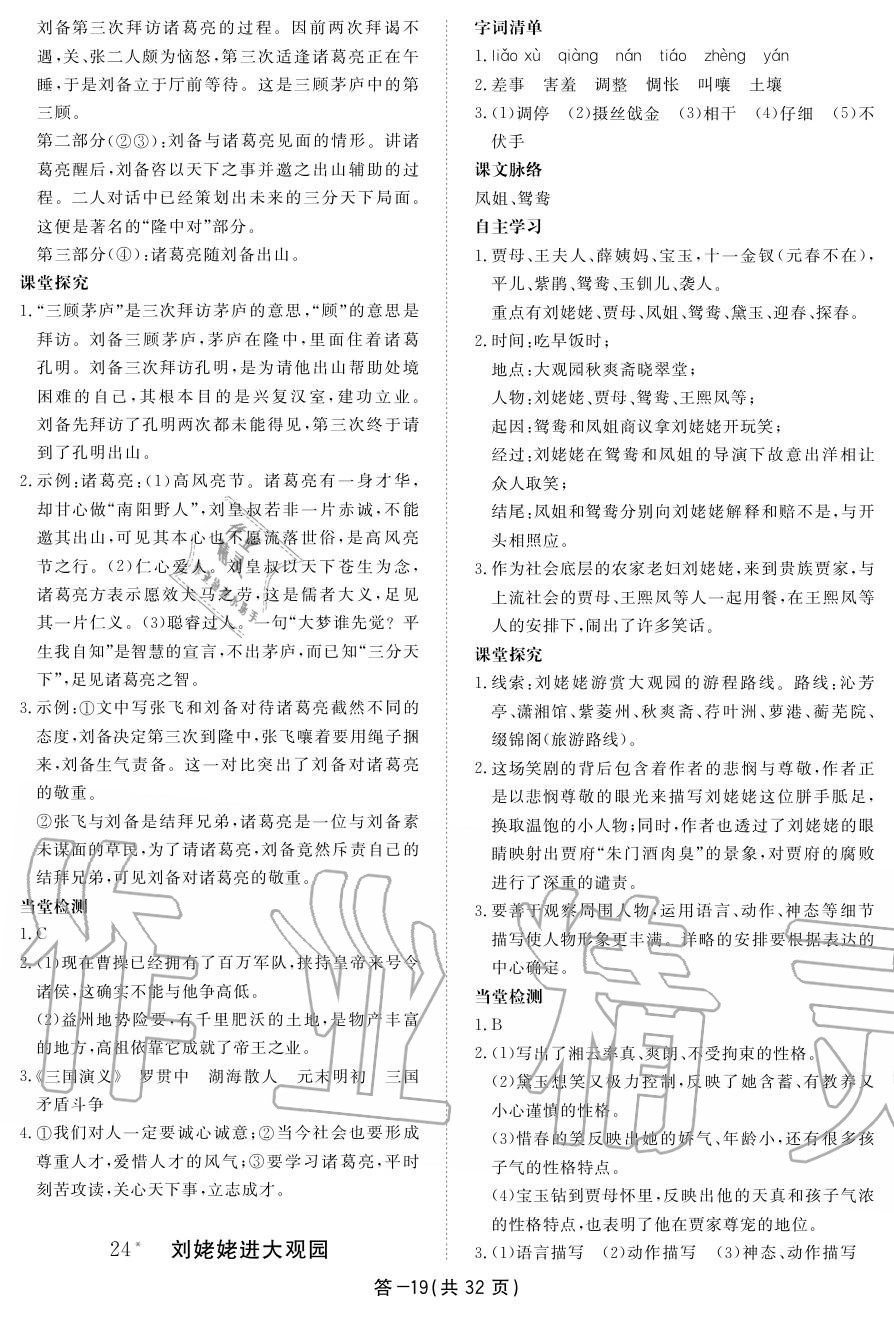 刘备第三次拜访诸葛亮的过程。因前两次拜谒不
遇,关、张二人颇为恼怒,第三次适逢诸葛亮正在午
睡,于是刘备立于厅前等待。这是三顾茅庐中的第
三顾。
第二部分(②③):刘备与诸葛亮见面的情形。讲诸
葛亮醒后,刘备咨以天下之事并邀之出山辅助的过
程。二人对话中已经策划出未来的三分天下局面。
这便是著名的“隆中对”部分。
第三部分(④):诸葛亮随刘备出山。
课堂探究
1.“三顾茅庐”是三次拜访茅庐的意思,“顾”的意思是
拜访。刘备三顾茅庐,茅庐在隆中,里面住着诸葛
孔明。刘备三次拜访孔明,是为请他出山帮助处境
困难的自己,其根本目的是兴复汉室,建功立业。
刘备先拜访了孔明两次都未能得见,第三次终于请
到了孔明出山。
2.示例:诸葛亮:(1)高风亮节。诸葛亮有一身才华,
却甘心做“南阳野人”,刘皇叔若非一片赤诚,不能
邀其出山,可见其本心也不愿流落世俗,是高风亮
节之行。(2)仁心爱人。刘皇叔以天下苍生为念,
诸葛亮方表示愿效犬马之劳,这是儒者大义,足见
其一片仁义。(3)聪睿过人。一句“大梦谁先觉?平
生我自知”是智慧的宣言,不出茅庐,而已知“三分天
下”,足见诸葛亮之智。
3.示例:①文中写张飞和刘备对待诸葛亮截然不同的
态度,刘备决定第三次到隆中,张飞嚷着要用绳子捆
来,刘备生气责备。这一对比突出了刘备对诸葛亮
的敬重。
②张飞与刘备是结拜兄弟,诸葛亮是一位与刘备素
未谋面的草民,为了请诸葛亮,刘备竟然斥责自己的
结拜兄弟,可见刘备对诸葛亮的敬重。
当堂检测
1.C
2.(1)现在曹操已经拥有了百万军队,挟持皇帝来号令
诸侯,这确实不能与他争高低。
(2)益州地势险要,有千里肥沃的土地,是物产丰富
的地方,高祖依靠它成就了帝王之业。
3.《三国演义》 罗贯中 湖海散人 元末明初 三国
矛盾斗争
4.①我们对人一定要诚心诚意;②当今社会也要形成
尊重人才,爱惜人才的风气;③要学习诸葛亮,平时
刻苦攻读,关心天下事,立志成才。
24* 刘姥姥进大观园
字词清单
1.liǎo xù qiàng nán tiáo zhèng yán
2.差事 害羞 调整 惆怅 叫嚷 土壤
3.(1)调停 (2)摄丝戗金 (3)相干 (4)仔细 (5)不
伏手
课文脉络
凤姐、鸳鸯
自主学习
1.贾母、王夫人、薛姨妈、宝玉,十一金钗(元春不在),
平儿、紫鹃、鸳鸯、玉钏儿、袭人。
重点有刘姥姥、贾母、凤姐、鸳鸯、黛玉、迎春、探春。
2.时间:吃早饭时;
地点:大观园秋爽斋晓翠堂;
人物:刘姥姥、贾母、鸳鸯、王熙凤等;
起因:鸳鸯和凤姐商议拿刘姥姥开玩笑;
经过:刘姥姥在鸳鸯和凤姐的导演下故意出洋相让
众人取笑;
结尾:凤姐和鸳鸯分别向刘姥姥解释和赔不是,与开
头相照应。
3.作为社会底层的农家老妇刘姥姥,来到贵族贾家,与
上流社会的贾母、王熙凤等人一起用餐,在王熙凤等
人的安排下,闹出了许多笑话。
课堂探究
1.线索:刘姥姥游赏大观园的游程路线。路线:沁芳
亭、潇湘馆、紫菱州、秋爽斋、荇叶洲、萝港、蘅芜院、
缀锦阁(旅游路线)。
2.这场笑剧的背后包含着作者的悲悯与尊敬,作者正
是以悲悯尊敬的眼光来描写刘姥姥这位胼手胝足,
换取温饱的小人物;同时,作者也透过了刘姥姥的眼
睛映射出贾府“朱门酒肉臭”的景象,对贾府的腐败
进行了深重的谴责。
3.要善于观察周围人物,运用语言、动作、神态等细节
描写使人物形象更丰满。详略的安排要根据表达的
中心确定。
当堂检测
1.B
2.(1)写出了湘云率真、爽朗、不受拘束的性格。
(2)黛玉想笑又极力控制,反映了她含蓄、有教养又
小心谨慎的性格。
(3)惜春的笑反映出她的娇气、年龄小,还有很多孩
子气的性格特点。
(4)宝玉钻到贾母怀里,反映出他的天真和孩子气浓
的性格特点,也表明了他在贾家尊宠的地位。
3.(1)语言描写 (2)动作描写 (3)神态、动作描写
答-19(共 32 页)
作业精灵